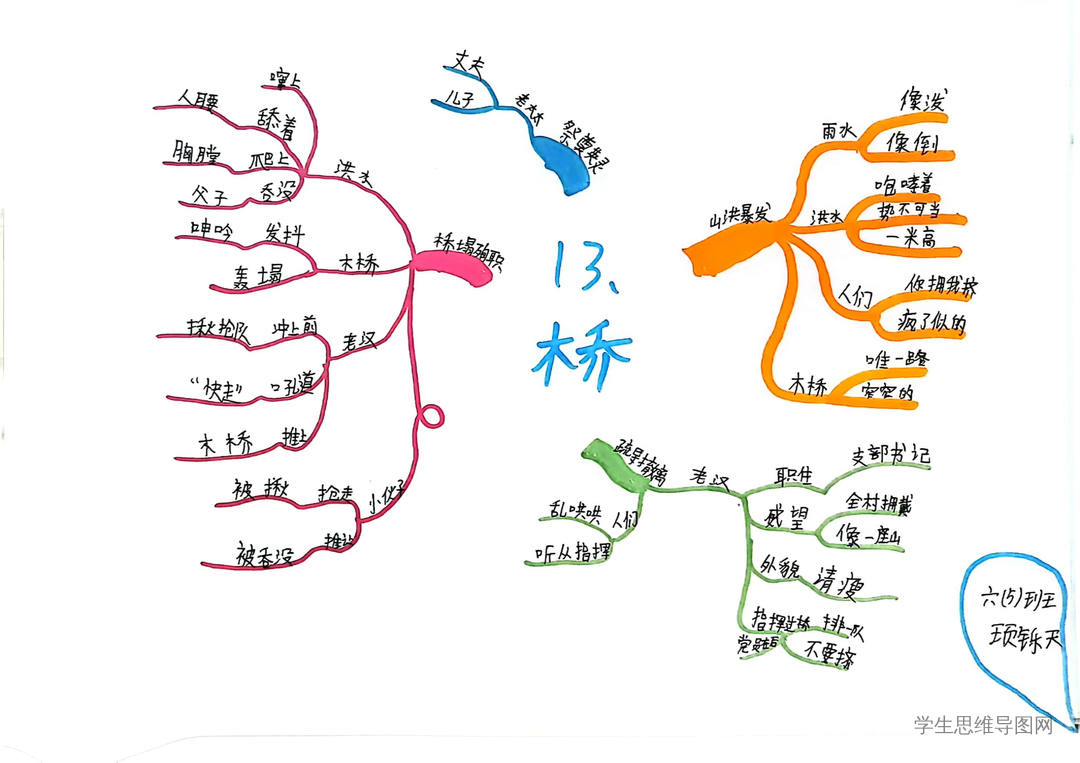 13、
木桥
山洪暴发
雨水
像泼
像倒
洪水
咆哮着
势不可当
一米高
人们
你拥我挤
疯了似的
木桥
唯一路
窄窄的
疏导撤离
老汉
职生
支部书记
威望
全村拥戴
像一座山
外貌
清瘦
指挥过桥
排一队
不要挤
人们
乱哄哄
听从指挥
桥塌殉职
洪水
窜上
舔着
人腰
爬上
胸膛
吞没
父子
木桥
发抖
呻吟
轰塌
老汉
冲上前
揪抢队
吼道
“快走”
推上
木桥
小伙子
抢走
被揪
推让
被吞没
祭奠英灵
老太太
丈夫
儿子
六(5)班
项铄天
学生思维导图网